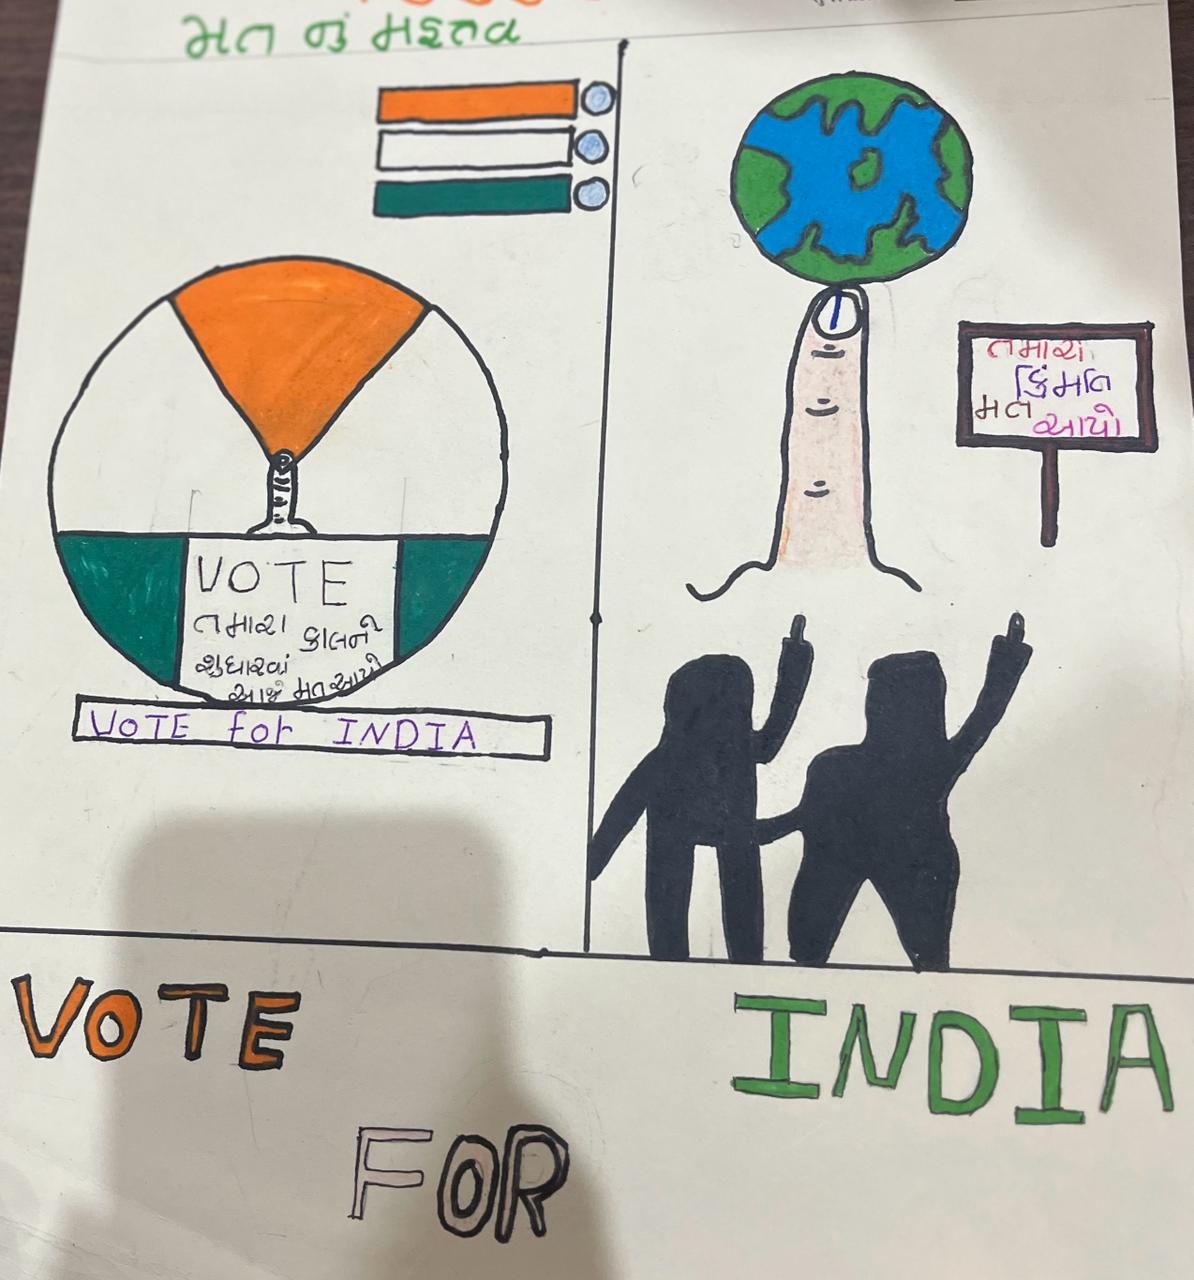 મત નું મહત્વ
VOTE
તમારા કાલને
સુધારવાં
આજે મત આપો
VOTE for INDIA
તમારો
કિંમતિ
મત આપો
VOTE
FOR
INDIA